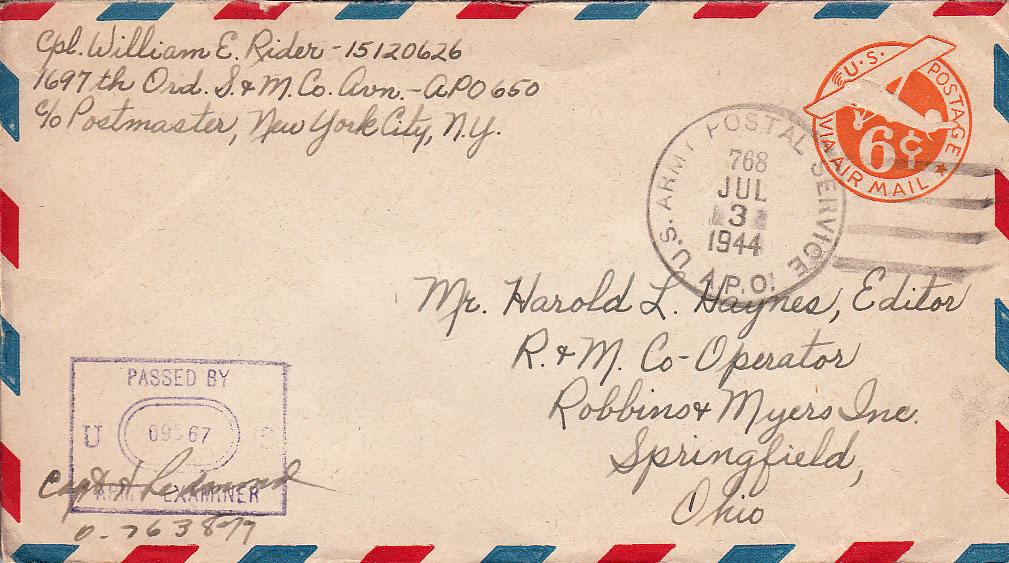 Cpl. William E. Rider - 15120626
1697th Ord. S. & M. Co. Avn. - APO 650
c/o Postmaster, New York City, N.Y.
U.S. POSTAGE
6¢
VIA AIR MAIL
U.S. ARMY POSTAL SERVICE
768
JUL
3
1944
A.P.O.
Mr. Harold L. Haynes, Editor
R. & M. Co-Operator
Robbins & Myers Inc.
Springfield,
Ohio
PASSED BY
U S
67
ARMY EXAMINER
Capt